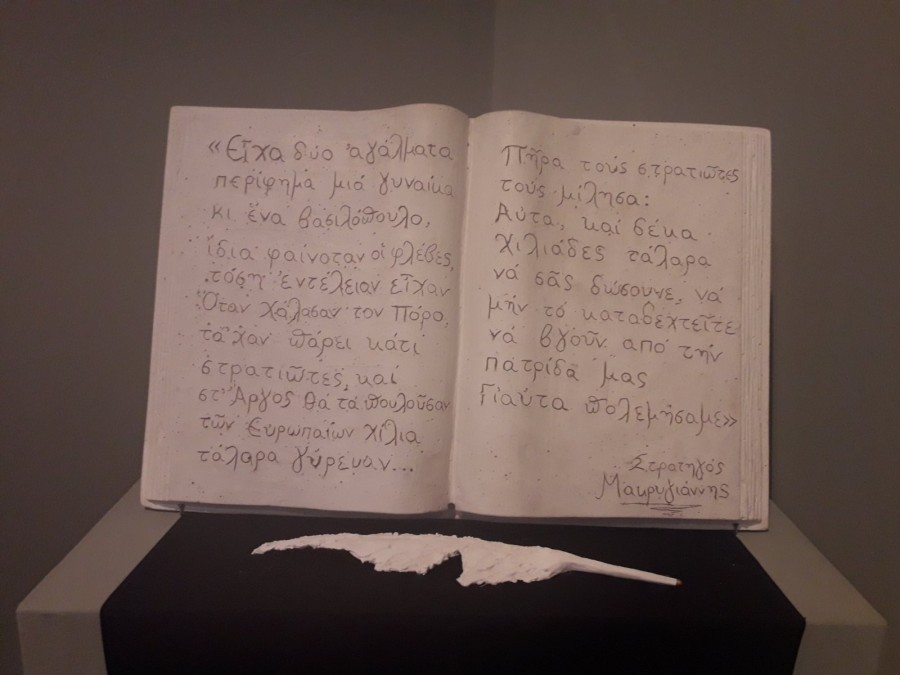 «Εἶχα δύο ἀγάλματα
περίφημα μιά γυναίκα
κι ἕνα βασιλόπουλο,
ἴδια φαίνοταν οἱ φλέβες,
τόση ἐντέλειαν εἶχαν
Ὅταν χάλασαν τον Πόρο,
τά 'χαν πάρει κάτι
στρατιῶτες, καί
στ' Ἄργος θά τα πουλοῦσαν
τῶν Ευρωπαίων χίλια
τάλαρα γύρευαν...
Πῆρα τούς στρατιῶτες
τούς μίλησα:
Αὐτα, καί δέκα
χιλιάδες τάλαρα
νά σᾶς δώσουνε, νά
μήν τό καταδεχτεῖτε
νά βγοῦν από τήν
πατρίδα μας
Γιαύτα πολεμήσαμε»
Στρατηγός
Μακρυγιάννης